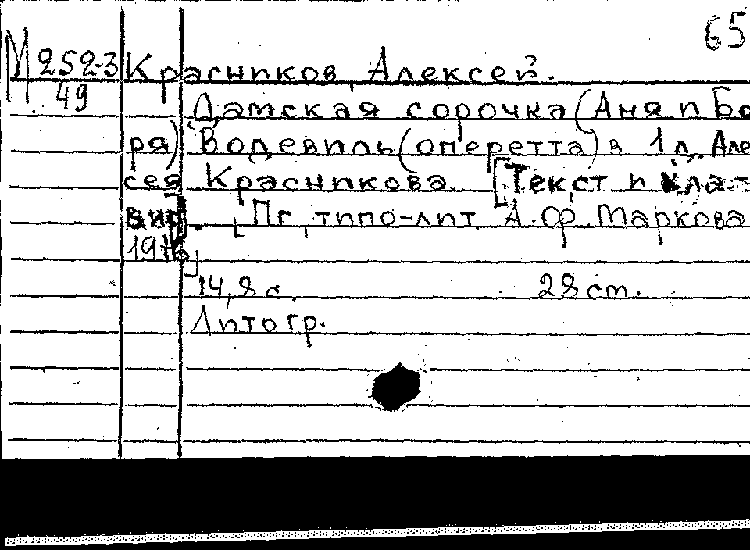 65
М 252-3
49
Красников, Алексей.
Дамская сорочка (Аня и Бо
ря) Водевиль (оперетта) в 1 д. Але
сея Красникова. [Текст и клa
вир
[Пг., типо-лит. А.Ф. Маркова
14, 8 с. 28 cm.
Литогр.